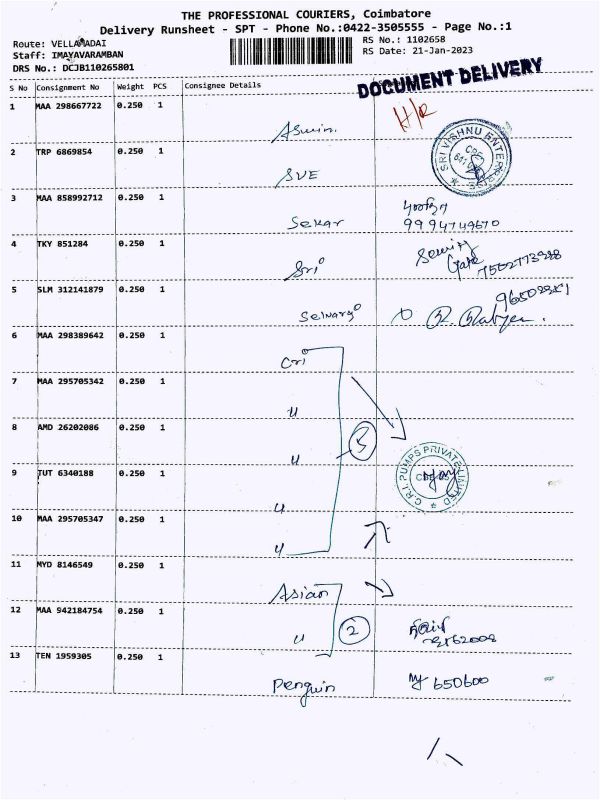 THE PROFESSIONAL COURIERS, Coimbatore
Delivery Runsheet - SPT - Phone No.:0422-3505555 - Page No.:1
Route: VELLAMADAI
RS No.: 1102658
Staff: IMAYAVARAMBAN
RS Date: 21-Jan-2023
DRS No.: DCJB110265801
DOCUMENT DELIVERY
S No Consignment No Weight PCS Consignee Details
1 MAA 298667722 0.250 1
Aswin.
SRI VISHNU ENTERPRISES
2 TRP 6869854 0.250 1
SVE
3 MAA 858992712 0.250 1
Sekar
9994749670
4 TKY 851284 0.250 1
Sri
Gate
5 SLM 312141879 0.250 1
6 MAA 298389642 0.250 1
Cri
7 MAA 295705342 0.250 1
"
8 AMD 26202086 0.250 1
"
5
C.R.I. PUMPS PRIVATE LIMITED
9 TUT 6340188 0.250 1
"
10 MAA 295705347 0.250 1
"
11 MYD 8146549 0.250 1
Asian
12 MAA 942184754 0.250 1
" 2
13 TEN 1959305 0.250 1
Penguin
650600